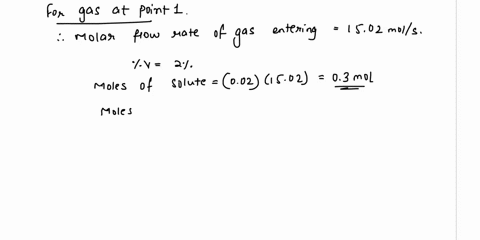 For gas at point 1.
∴ Molar flow rate of gas entering = 15.02 mol/s.
%V = 2%
Moles of solute = (0.02) (15.02) = 0.3 mol
Moles